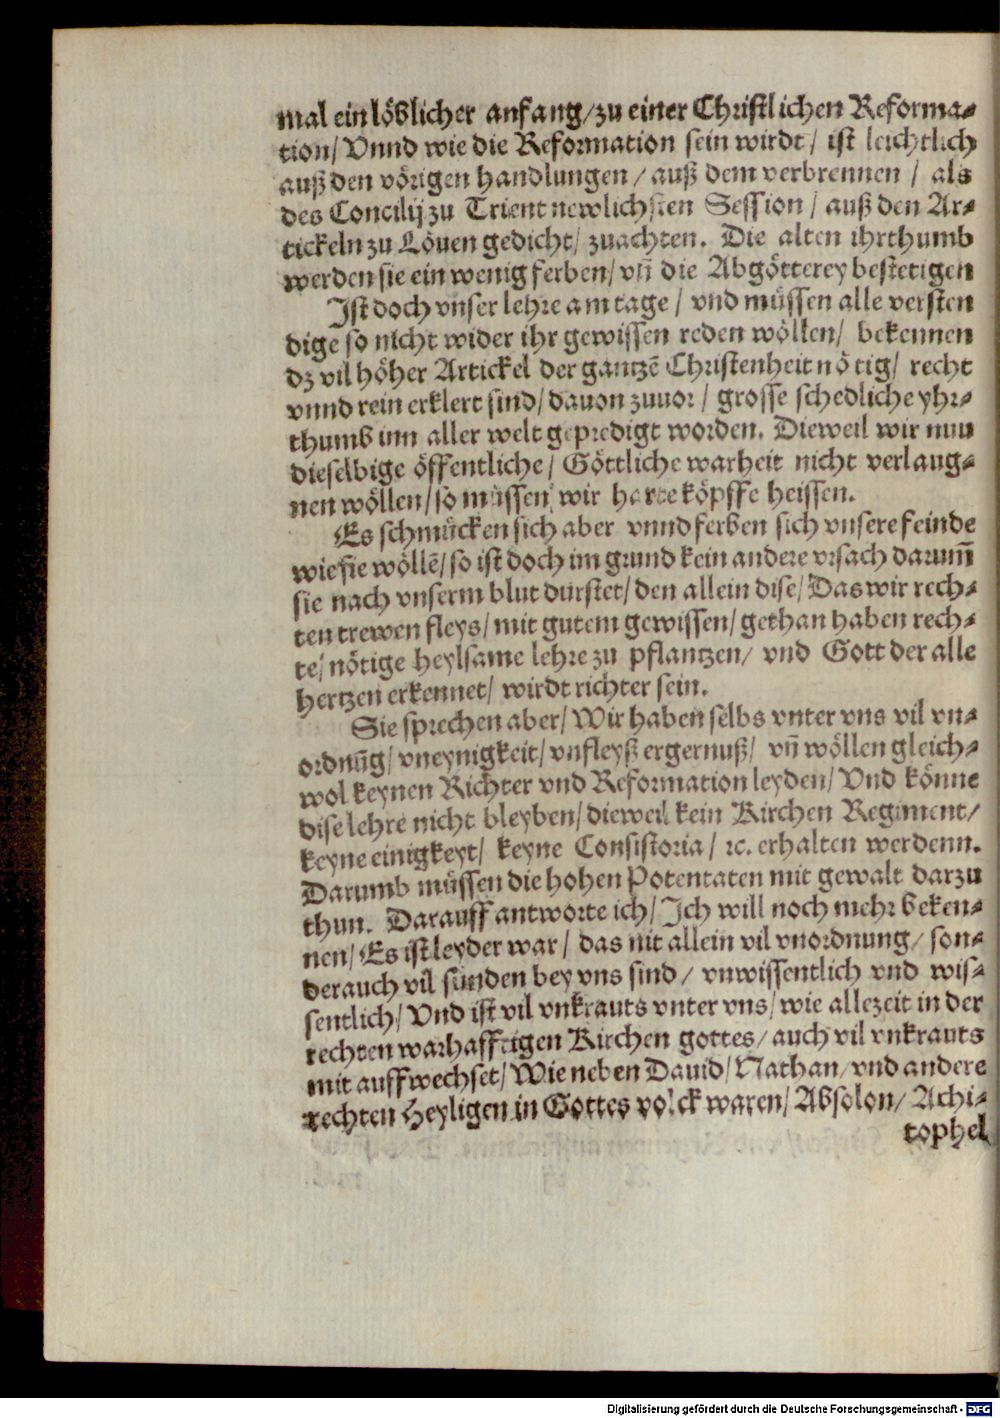 mal ein löblicher anfang/ zu einer Christlichen Reforma-
tion/ Vnnd wie die Reformation sein wirdt/ ist leichtlich
auß den vörigen handlungen/ auß dem verbrennen/ als
des Concilij zu Trient newlichsten Session/ auß den Ar-
tickeln zu Löuen gedicht/ zuachten. Die alten ihrthumb
werden sie ein wenig ferben/ vñ die Abgötterey bestetigen
Ist doch vnser lehre am tage/ vnd müssen alle versten
dige so nicht wider ihr gewissen reden wöllen/ bekennen
dz vil höher Artickel der gantzē Christenheit nötig/ recht
vnnd rein erklert sind/ dauon zuuor/ grosse schedliche yhr-
thumb inn aller welt gepredigt worden. Dieweil wir nun
dieselbige öffentliche/ Göttliche warheit nicht verlaug-
nen wöllen/ so müssen wir harte köpffe heissen.
Es schmücken sich aber vnnd ferben sich vnsere feinde
wie sie wöllē/ so ist doch im grund kein andere vrsach darum̄
sie nach vnserm blut dürstet/ den allein dise/ Das wir rech-
ten trewen fleys/ mit gutem gewissen/ gethan haben rech-
te/ nötige heylsame lehre zu pflantzen/ vnd Gott der alle
hertzen erkennet/ wirdt richter sein.
Sie sprechen aber/ Wir haben selbs vnter vns vil vn-
ordnūg/ vneynigkeit/ vnfleyß ergernuß/ vñ wöllen gleich-
wol keynen Richter vnd Reformation leyden/ Vnd könne
dise lehre nicht bleyben/ dieweil kein Kirchen Regiment/
keyne einigkeyt/ keyne Consistoria/ ꝛc. erhalten werdenn.
Darumb müssen die hohen Potentaten mit gewalt darzu
thun. Darauff antworte ich/ Ich will noch mehr beken-
nen/ Es ist leyder war/ das nit allein vil vnordnung/ son-
der auch vil sünden bey vns sind/ vnwissentlich vnd wis-
sentlich/ Vnd ist vil vnkrauts vnter vns/ wie allezeit in der
rechten warhafftigen Kirchen gottes/ auch vil vnkrauts
mit auffwechset/ Wie neben Dauid/ Nathan/ vnd andere
rechten Heyligen in Gottes volck waren/ Absolon/ Achi-
tophel
Digitalisierung gefördert durch die Deutsche Forschungsgemeinschaft - DFG